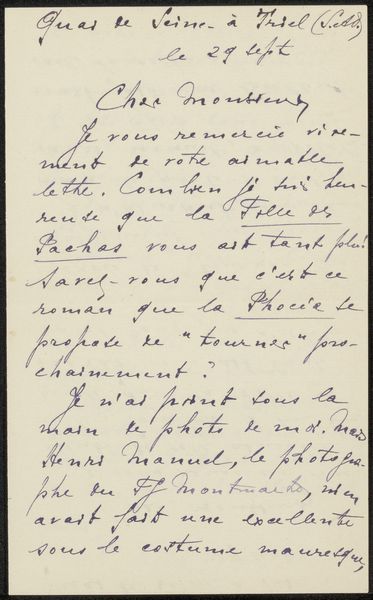 Quai de Seine - à Triel (S.&O.)
le 29 sept
Cher Monsieur,
Je vous remercie vive-
ment de votre aimable
lettre. Combien je suis heu-
reuse que la Fille des
Pachas vous ait tant plu!
Savez-vous que c'est ce
roman que la Phocéa se
propose de "tourner" pro-
chainement?
Je n'ai point sous la
main de photo de moi. Mais
Henri Manuel, le photogra-
phe du Fg Montmartre, m'en
avait fait une excellente
sous le costume mauresque,